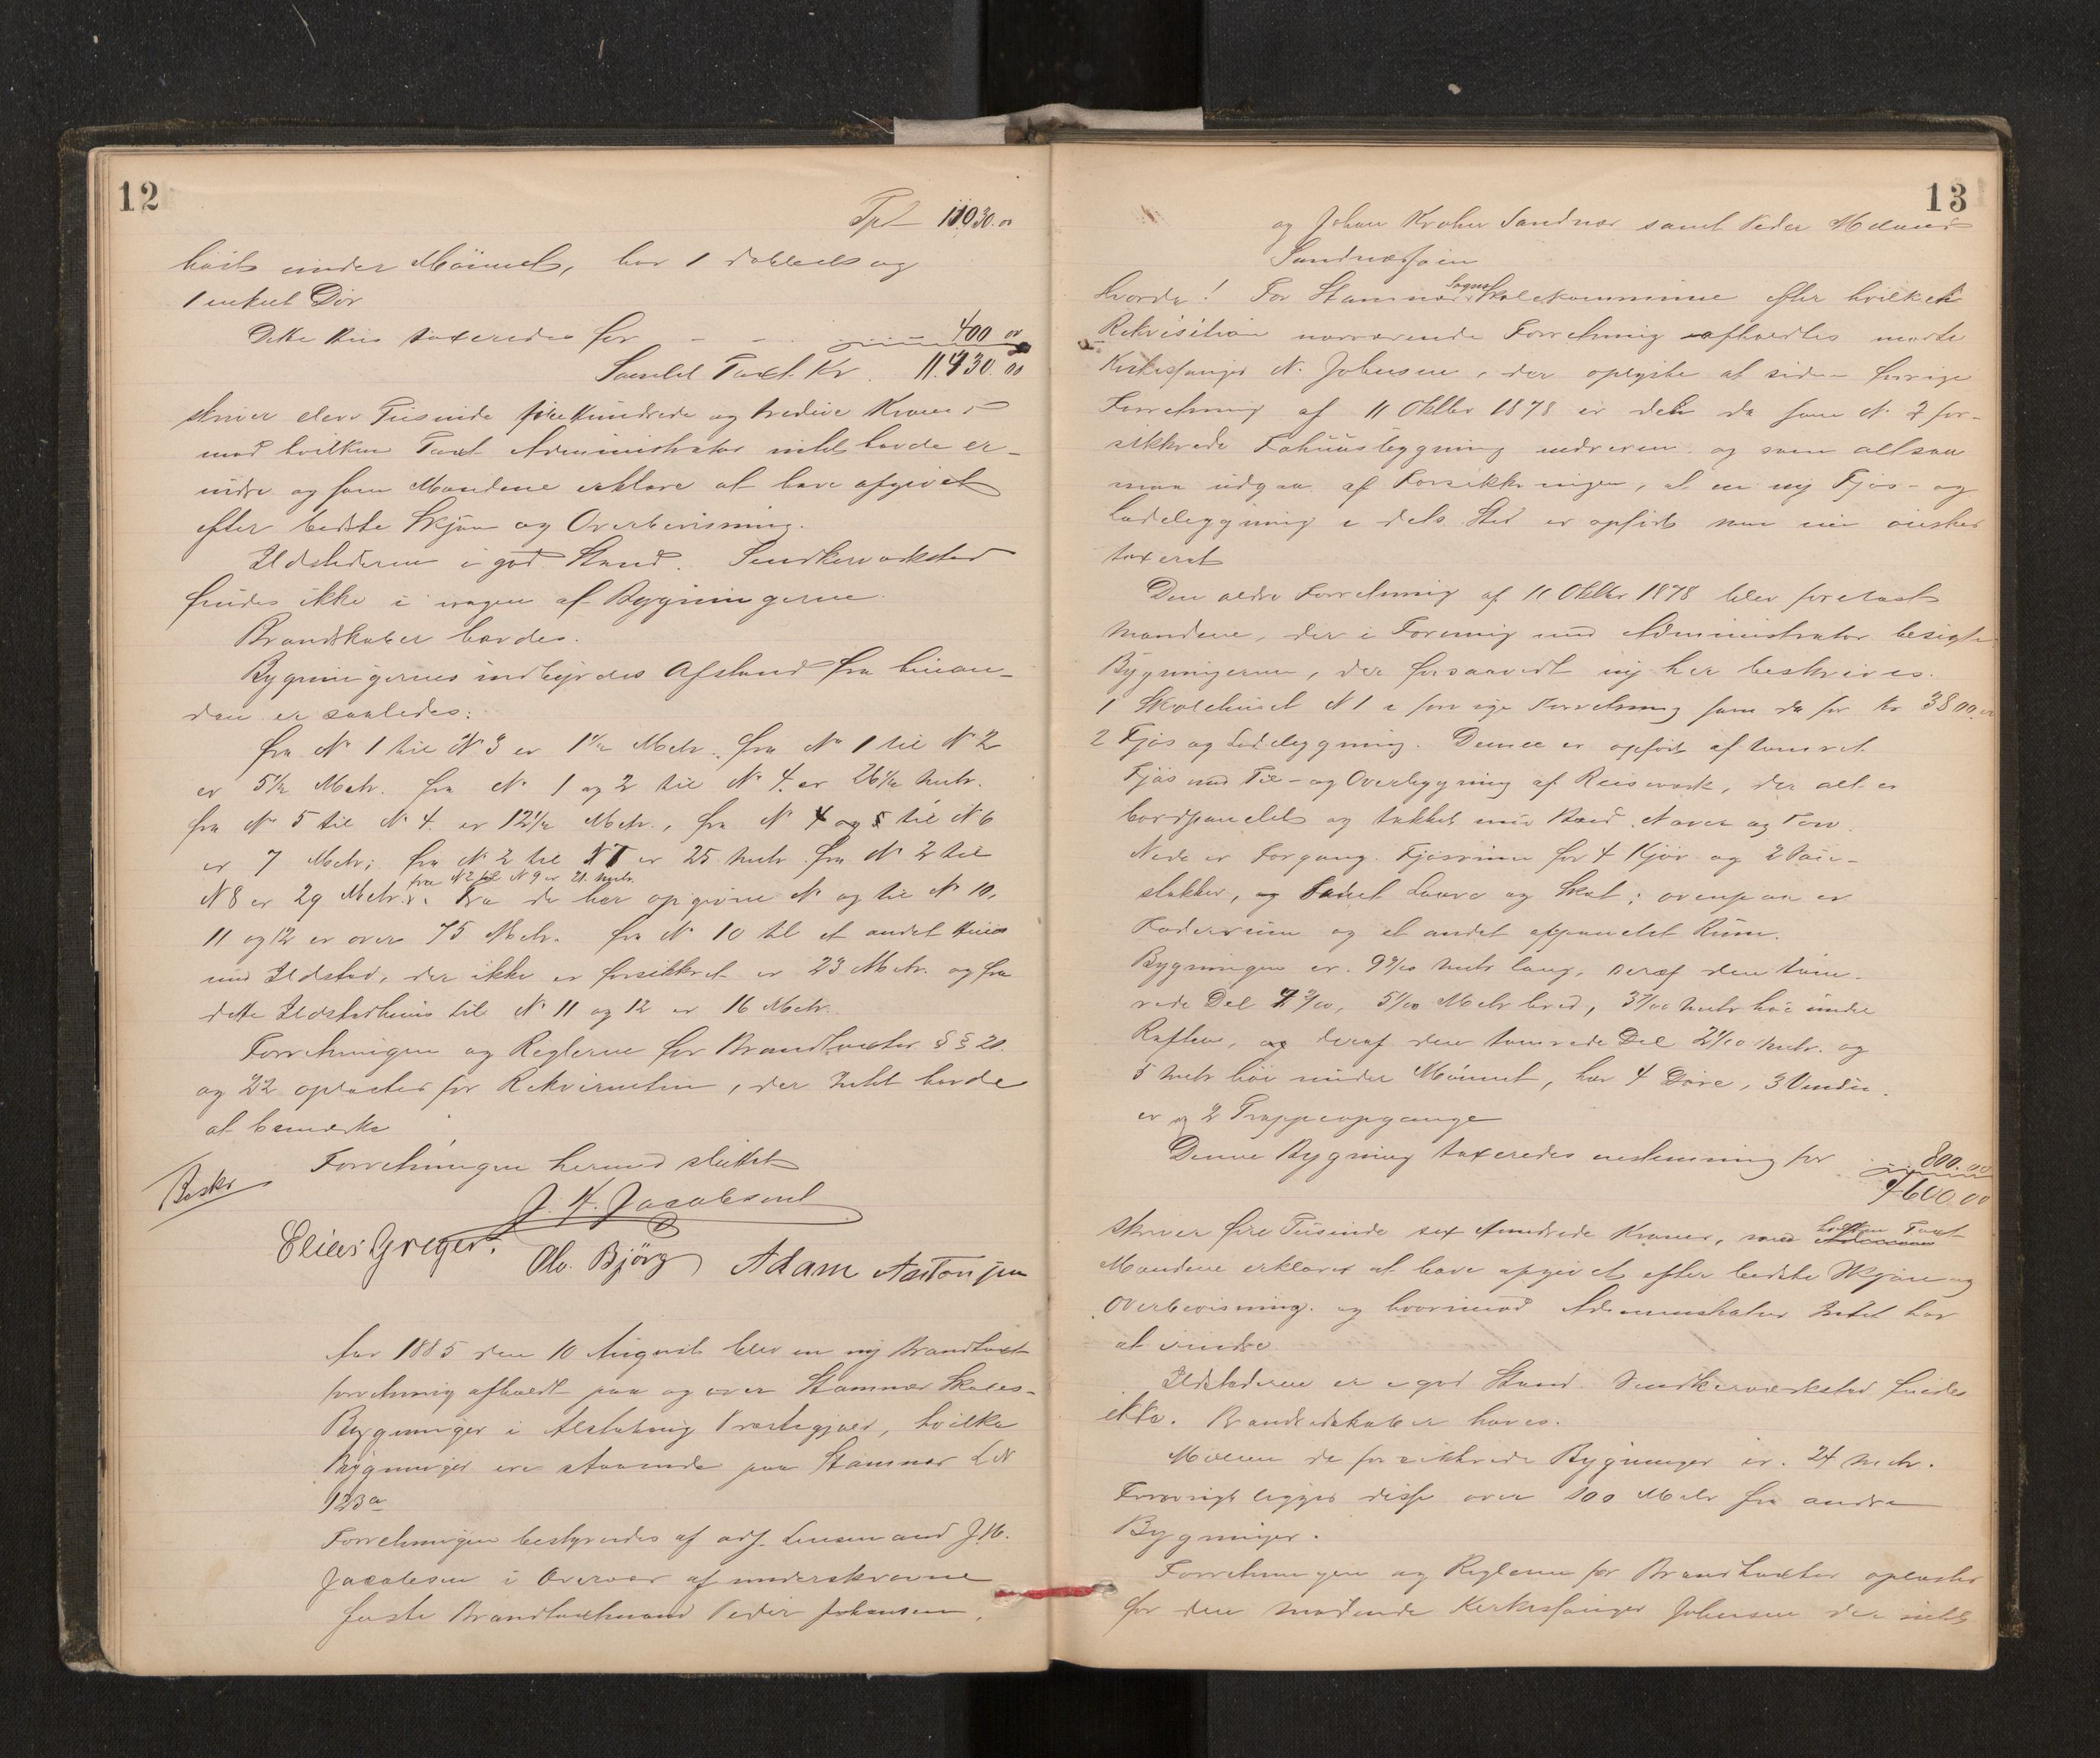 12
Tpt 11030.00
høit under Mønnet, har 1 dobbelt og
1 enkel Dør
Dette Huus taxeredes for - - 400 00
Samlet Taxt Kr. 11.430.00
skriver elleve Tusinde fire Hundrede og tredive Kroner
mod hvilken Taxt Administrator intet havde er-
indre og som Mændene erklære at have afgivet
efter bedste Skjøn og Overbevisning.
Ildstederne i god Stand. Snedkerværksted
findes ikke i nogen af Bygningerne.
Brandskaber havdes.
Bygningernes indbyrdes Afstand fra hinan-
den er saaledes:
fra No 1 til No 3 er 1 1/2 Metr. fra No 1 til No 2
er 5 1/2 Metr. fra No 1 og 2 til No 4 er 26 1/2 Metr.
fra No 5 til No 4 er 12 1/2 Metr., fra No 4 og 5 til No 6
er 7 Metr; fra No 2 til N 7 er 25 Metr fra No 2 til
fra N 2 til N 9 er 21 Metr.
N 8 er 29 Metr. Fra de her opgivne No og til No 10,
11 og 12 er over 75 Metr. fra No 10 til et andet Huus
med Ildsted, der ikke er forsikkret er 23 Metr. og fra
dette Ildstedhuus til No 11 og 12 er 16 Metr.
Forretningen og Reglerne for Brandtaxter §§ 20
og 22 oplæstes for Rekvirenten, der Intet havde
at bemærke
Forretningen hermed sluttet
Beskr
J. H. Jacobsen
Elias Greger. Ole Bjørg Adam Antonsen
Aar 1885 den 10 August blev en ny Brandtaxt
forretning afholdt paa og over Stamnes Skoles-
Bygninger i Alstahaug Præstegjæld, hvilke
Bygninger ere staaende paa Stamnes LN
123a
Forretningen bestyredes af adj. Lensmand J. H.
Jacobsen i Overvær af underskrevne
faste Brandtaxtmænd Peder Johansen,
13
og Johan Sandnes samt Peder
Sandnæsøien
hvorda! For Stamnes Sogns Skolekommune efter hvilken
Rekvisition nærværende Forretning afholdtes mødte
Kirkesanger N. Johnsen, der oplyste at siden forrige
Forretning af 11 Oktbr 1878 er den da som No 2 for-
sikkrede Fæhuusbygning nedreven og som altsaa
maa udgaa af Forsikkringen, at en ny Fjøs- og
Ladebygning i dets Sted er opført som nu ønskes
taxeret
Den ældre Forretning af 11 Oktbr 1878 blev forelæst
Mændene, der i Forening med Administrator besigte
Bygningerne, der forsaavidt ny her beskrives.
1 Skolehuset N 1 i forrige Forretning som da for Kr 3800.00
2 Fjøs og Ladebygning. Denne er opført af tømret
Fjøs med Til- og Overbygning af Reisværk, der alt er
bordpanelet og tækket med Bord, Næver og Torv.
Nede er Forgang. Fjøsrum for 4 Kjør og 2 Saue-
stakker, og Ladet Laave og Skot; ovenpaa er
Foderrum og et andet afpanelet Rum.
Bygningen er 9 9/10 Metr lang, deraf den tøm-
rede Del 7 3/10, 5 1/10 Metr bred, 3 7/10 Metr høi under
Raften, og deraf den tømrede Del 2 1/10 Metr. og
5 Metr høi under Mønnet, har 4 Døre, 3 Vindu
er og 2 Trappeopgange
Denne Bygning taxeredes enstemmig for 800.00
4600.00
skriver fire Tusinde sex Hundrede Kroner, hvilken Taxt
Mændene erklærer at have afgivet efter bedste Skjøn og
Overbevisning. og hvorimod Administrator Intet har
at erindre
Ildstederne er i god Stand. Snedkerværksted findes
ikke. Brandredskaber haves.
Mellem de forsikkrede Bygninger er 24 Metr.
Forøvrigt ligger disse over 100 Metr fra andre
Bygninger.
Forretningen og Reglerne for Brandtaxter oplæstes
for den mødende Kirkesanger Johnsen der intet